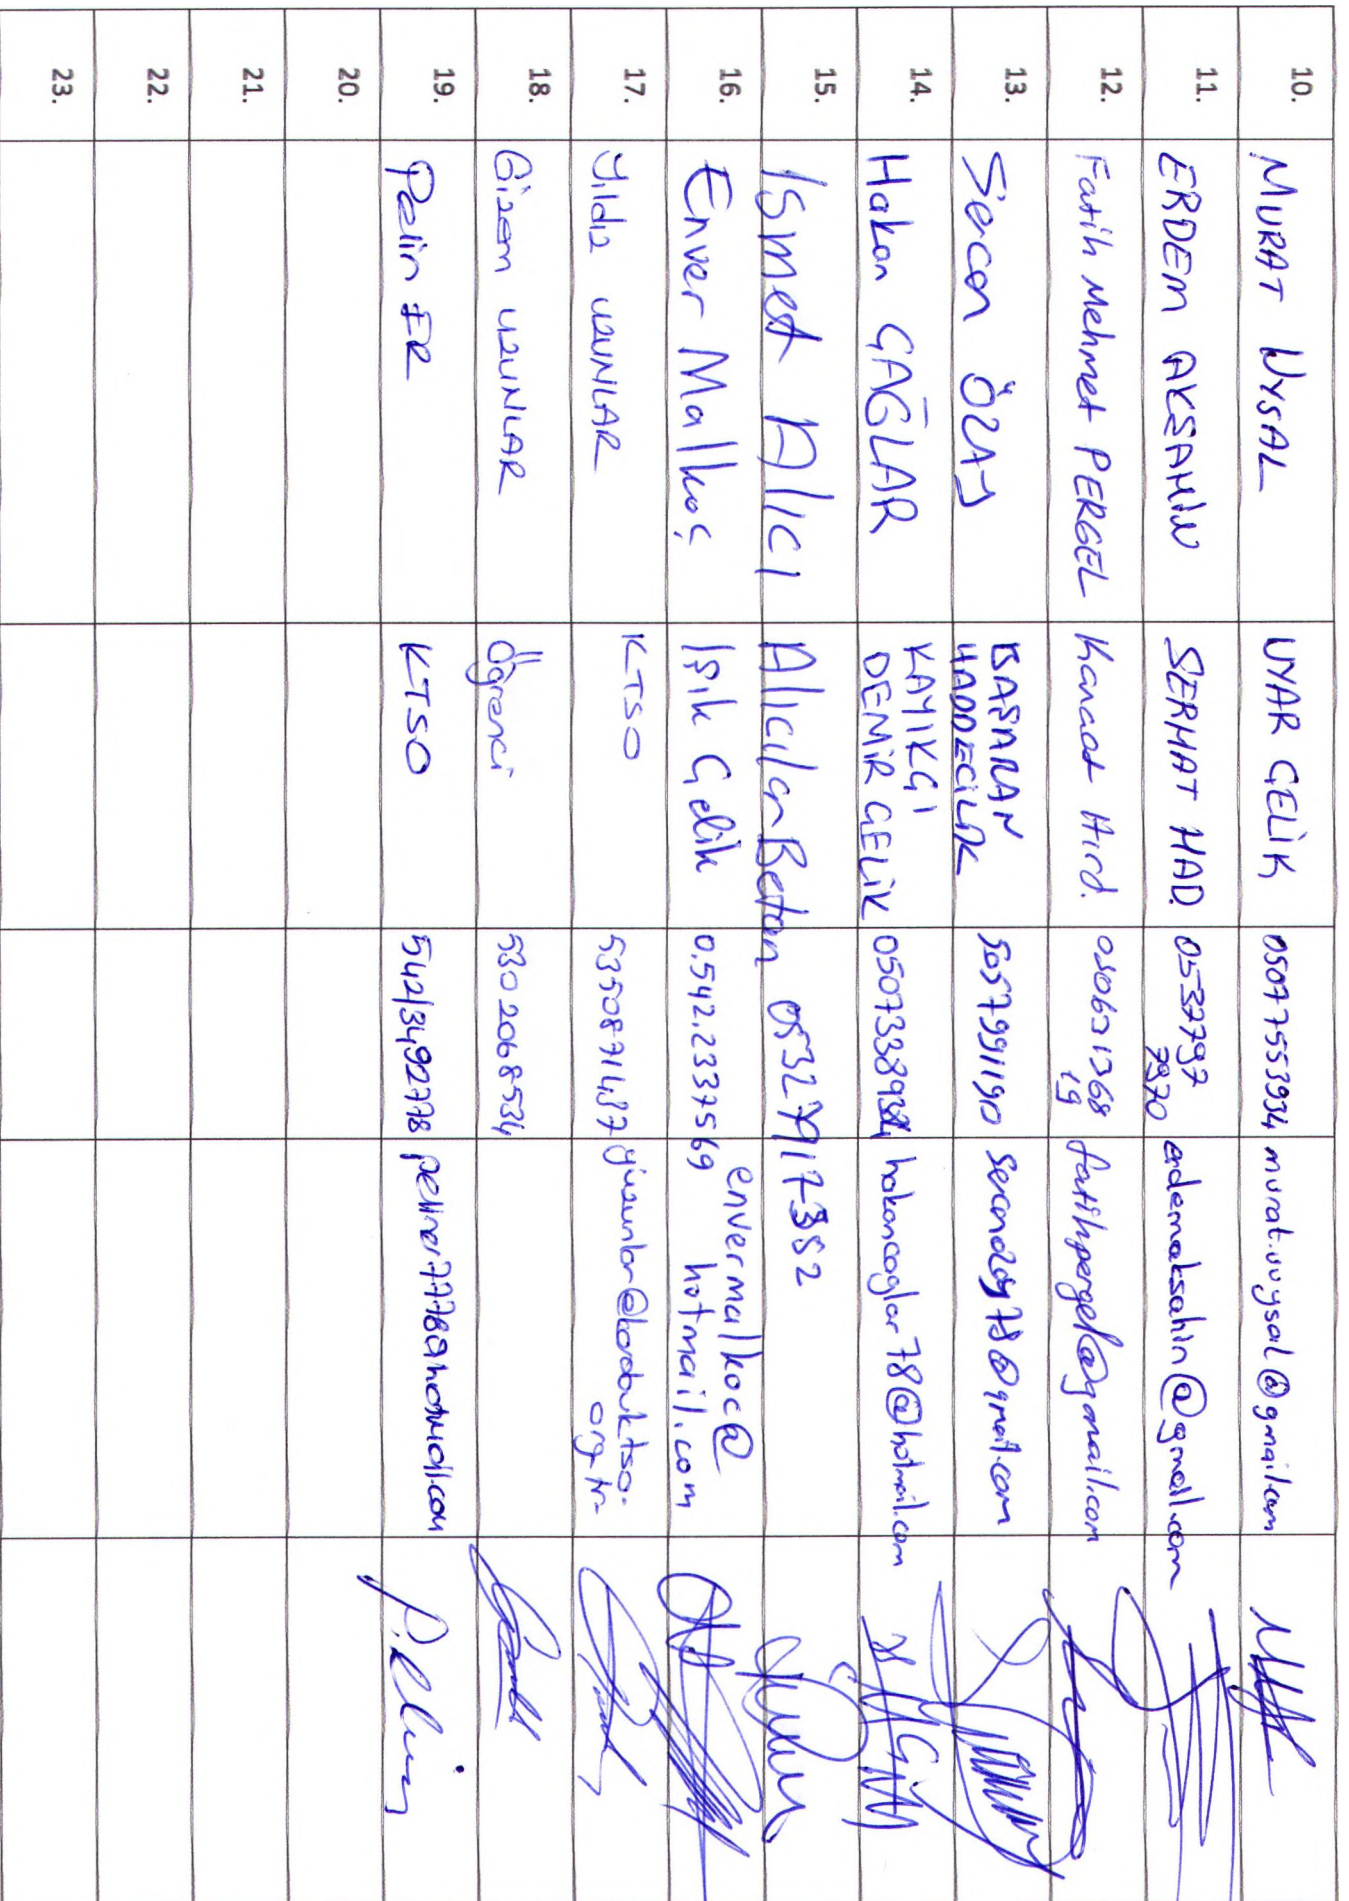 10. MURAT UYSAL UYAR ÇELİK 05077553934 murat.uuysal@gmail.com
11. ERDEM AKŞAHİN SERHAT HAD. 0537797
7970 erdemaksahin@gmail.com
12. Fatih Mehmet PERGEL Kanaat Hırd. 050631368
19 fatihpergel@gmail.com
13. Sercan ÖZAY BAŞARAN
HADDECİLİK 5057991190
14. Hakan ÇAĞLAR KAYIKÇI
DEMİR ÇELİK hakancaglar78@hotmail.com
15. İsmet Alıcı Alıcılar Beton
16. Enver Malkoç Işık Çelik 0.542.2337569 envermalkoc@
hotmail.com
17. Yıldız UZUNLAR KTSO 5350871437 yuzunlar@karabuktso.
org.tr
18. Gizem UZUNLAR Öğrenci 5302068534
19. Pelin ER KTSO
20.
21.
22.
23.